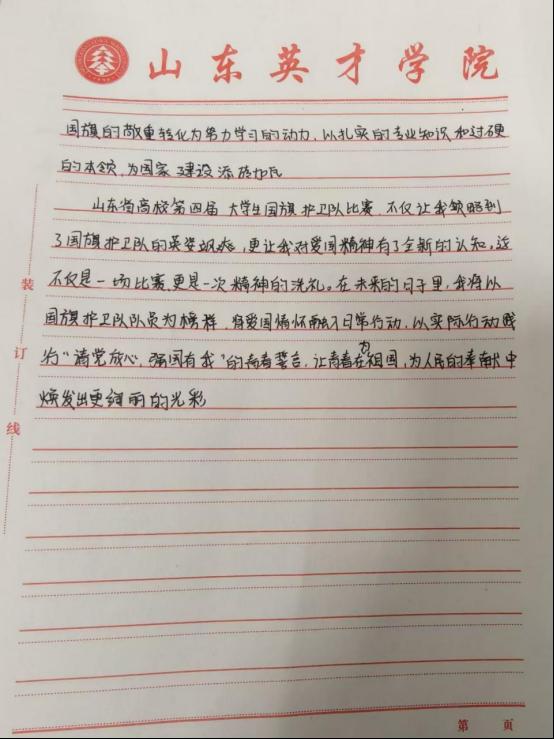 山东英才学院
国旗的敬重转化为努力学习的动力，以扎实的专业知识和过硬
的本领，为国家建设添砖加瓦
山东省高校第四届大学生国旗护卫队比赛，不仅让我领略到
了国旗护卫队的英姿飒爽，更让我对爱国精神有了全新的认知。这
不仅是一场比赛，更是一次精神的洗礼。在未来的日子里，我将以
国旗护卫队队员为榜样，将爱国情怀融入日常行动，以实际行动践
行“请党放心，强国有我”的青春誓言，让青春在为祖国，为人民的奉献中
焕发出更绚丽的光彩
装
订
线
第 页